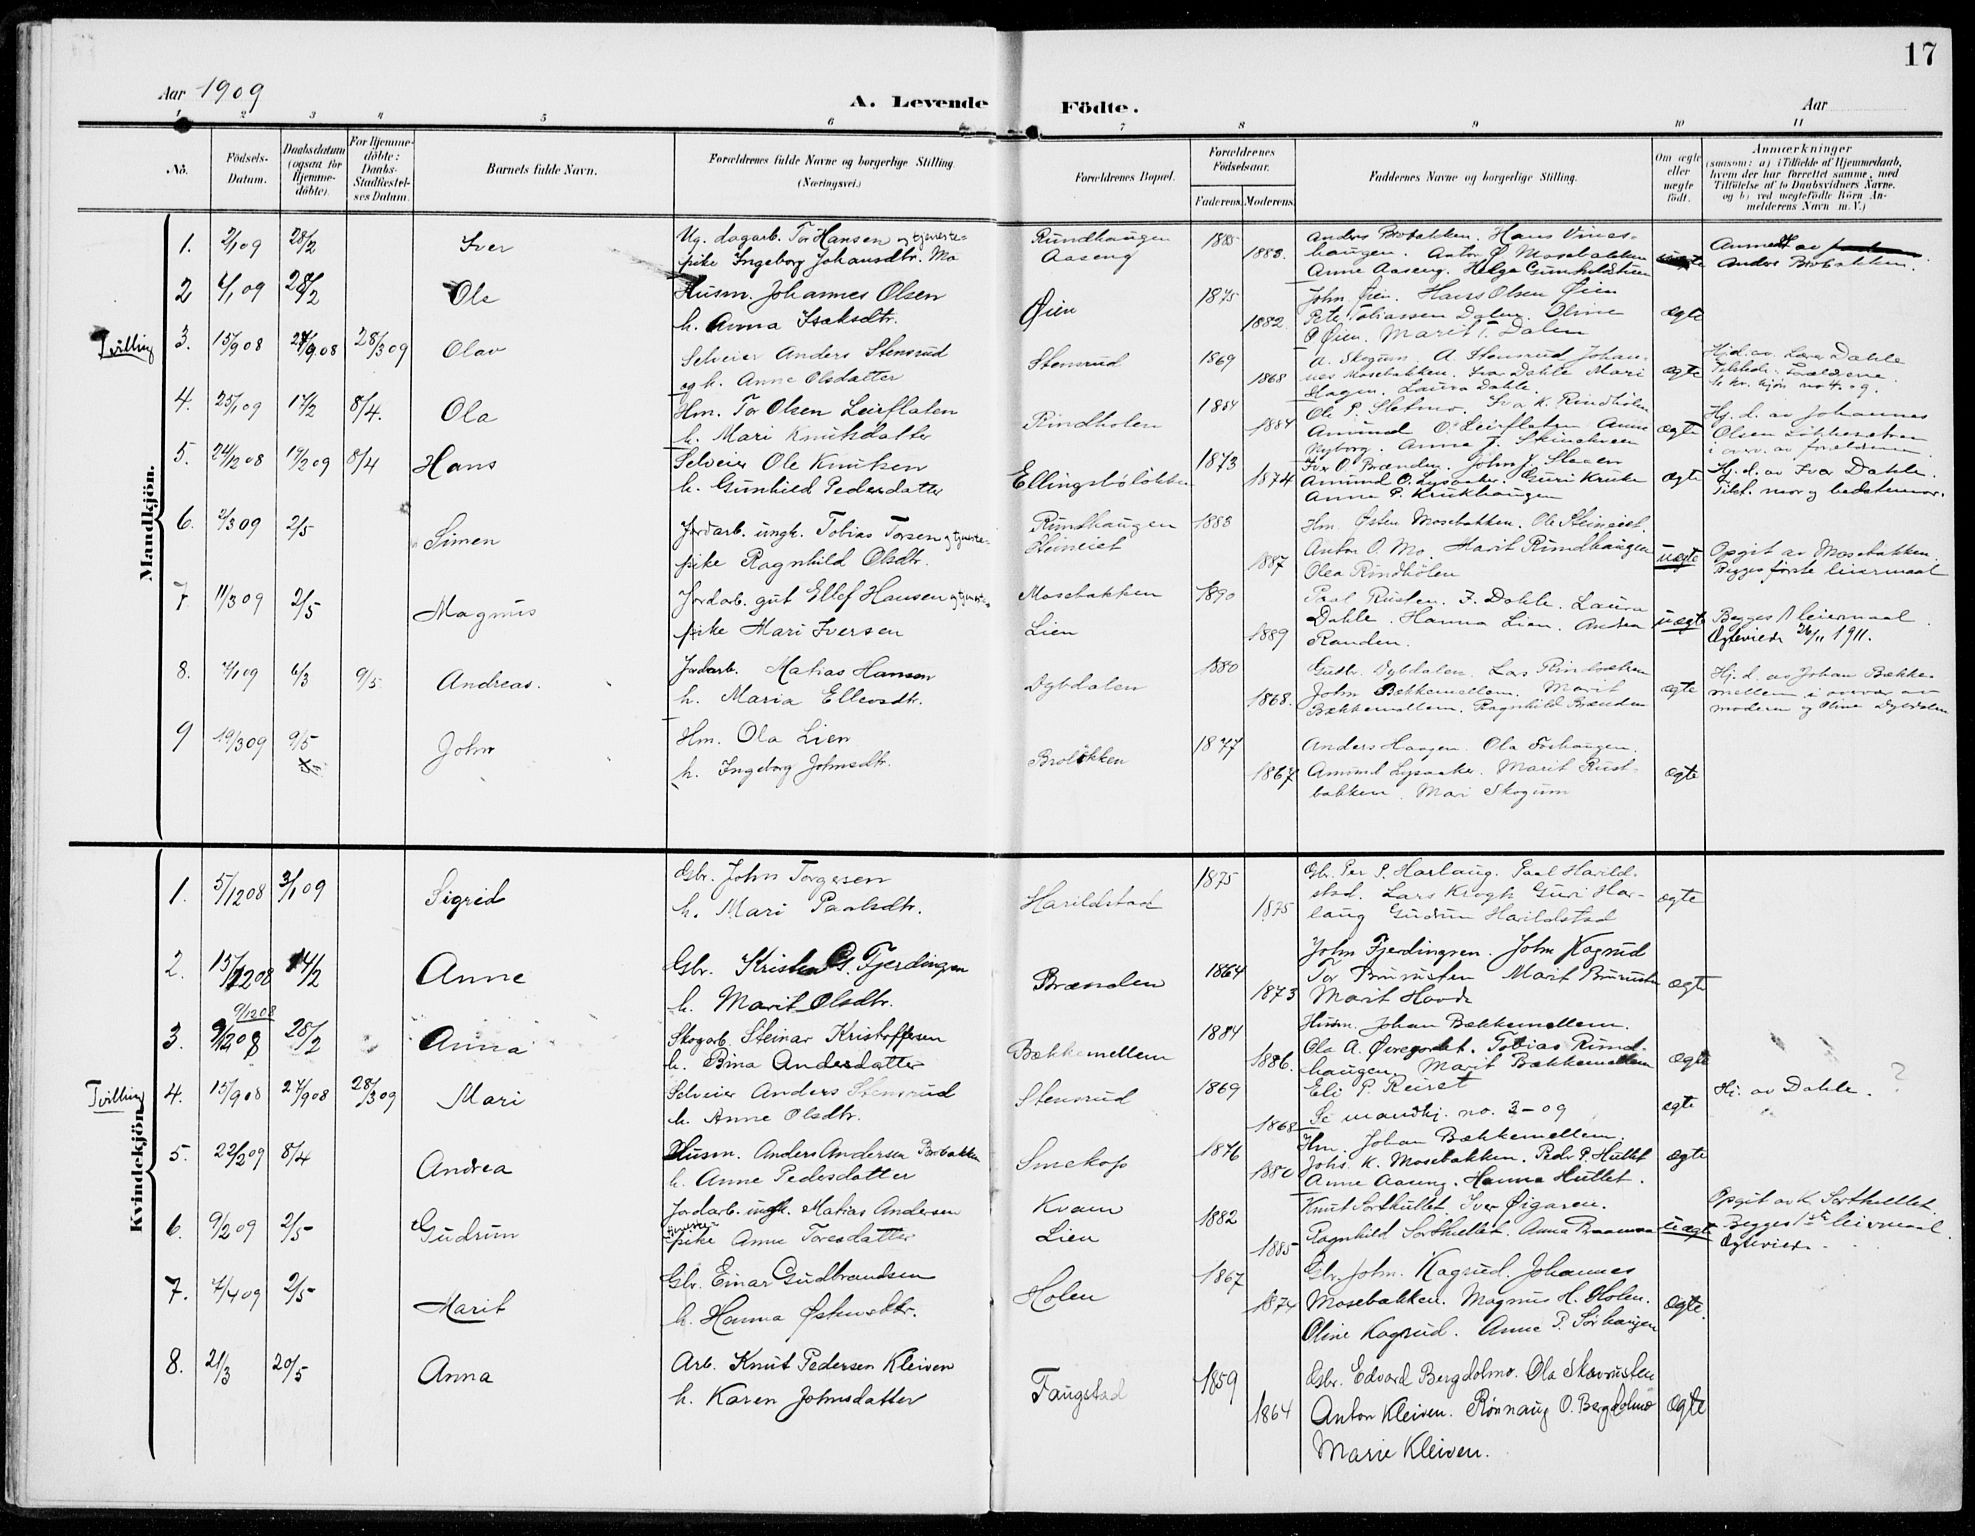 17
Aar 1909
A. Levende Födte.
Aar
1 2 3 4 5 6 7 8 9 10 11
No.
Födsels-Datum.
Daabsdatum (ogsaa for Hjemme-döbte).
For Hjemme-döbte: Daabs-Stadfæstel-ses Datum.
Barnets fulde Navn.
Forældrenes fulde Navne og borgerlige Stilling. (Næringsvei.)
Forældrenes Bopæl.
Forældrenes Födselsaar.
Faderens. Moderens.
Faddernes Navne og borgerlige Stilling.
Om ægte eller uægte födt.
Anmærkninger
(saasom: a) i Tilfælde af Hjemmedaab,
hvem der har forrettet samme, med
Tilföielse af to Daabsvidners Navne.
og b) ved uægtefödte Börn An-
melderens Navn m. V.)
Mandkjön.
1. 2/1 09 28/2 Iver
Ug. dagarb. Tor Hansen og tjeneste-
pike Ingeborg Johansdtr. Mo
Rundhaugen
Aaseng
1885
1883.
Anders Brobakken. Hans Vines-
haugen. Anton Ø Mosebakken
Anne Aaseng. Helga
Anmeldt av
Anders Brobakken.
2 4/1 09 28/2 Ole
Husm. Johannes Olsen
h. Anna Isaksdtr.
Øien
1875
1882.
John Øien. Hans Olsen Øien
Pete Tobiassen Dalen. Oline
O Øien. Marit T. Dalen
ægte
Tvilling
3. 15/9 08 27/9 08 28/3 09 Olav
Selveier Anders Stensrud
og h. Anne Olsdatter
Stensrud
1869
1868
A. Skogum. A Stensrud Johan-
nes Mosebakken. Ivar Dahle Mari
Hagen. Laura Dahle.
ægte
Hj.d. av Lærer Dahle
Tilstede: Forældrene.
Se kv. kjön no 4. 09.
4. 25/1 09 17/2 8/4. Ola
Hm. Tor Olsen Leirflaten
h. Mari Knutsdatter
Rindholen
1884
1884
Ole P. Sletmo. Iva K. Rindhölen
Amund O. Leirflaten Anne
Nyborg. Anne J.
ægte
Hj. d. av Johannes
Olsen Løkkensetren
i overv. av forældrene.
5. 24/12 08 19/2 09 8/4 Hans
Selveier Ole Knutsen
h. Gunhild Pedersdatter
Ellingsbøløkken
1873
1874
Iver O Brænden. John J. Slaaen
Amund O. Lysaaker. Guri Kruke
Anne P. Krukhaugen
ægte
Hj. d. av Ivar Dahle.
Tilst. mor og bedstemor.
6. 2/3 09 2/5 Simen
Jordarb. ungk. Tobias Torsen og tjeneste-
pike Ragnhild Olsdtr.
Rundhaugen
Steineiet
1883
1887
Hm. Østen Mosebakken. Ole Steineiet.
Anton O. Mo. Marit Rundhaugen
Olea Rindhölen
uægte
Opgit av Mosebakken.
Begges første leiermaal
7. 11/3 09 2/5 Magnus
Jordarb. gut Ellef Hansen og tjeneste-
pike Mari Iversen
Mosebakken
Lien
1890
1889
Paal Rusten. I. Dahle. Laura
Dahle. Hanna Lien. Andrea
Randen.
uægte
Begges 1 leiermaal.
Egteviede 26/11 1911.
8. 7/1 09 6/3 9/5 Andreas.
Jordarb. Matias Hansen
h. Maria Ellevsdtr.
Dybdalen
1880
1868.
Gudbr. Dybdalen. Lars Rindsætren
John Bækkemellem. Marit
Bækkemellem. Ragnhild Brænden
ægte
Hj. d. av Johan Bække-
mellem i overvær av
moderen og Oline Dybdalen
9 19/3 09 9/5 John
Hm. Ola Lien
h. Ingeborg Johnsdtr.
Broløkken
1877
1867
Anders Haagen. Ola Forhaugen.
Amund Lysaaker. Marit Rust-
bakken. Mari Skogum
ægte
Kvindekjön.
1. 5/12 08 3/1 09 Sigrid
Gbr. John Torgersen
h. Mari Paalsdtr.
Harildstad
1875
1875
Gbr. Per P. Harlaug. Paal Harild-
stad. Lars Krogh Guri Har-
laug Gudrun Harildstad
ægte
2. 15/12 08 14/2 Anne
Gbr. Kristen G. Fjerdingen
h. Marit Olsdtr.
Brænden
1864
1873
John Fjerdingren. John Kagrud
Tor Brurusten Marit Brurusten
Marit Hovde
ægte
9/12 08
3. 9/12 08 28/2 Anna
Skogarb. Steinar Kristoffersen
h. Bina Andersdatter
Bækkemellem
1884
1886.
Husm. Johan Bækkemellem.
Ola A. Øvregardet. Tobias Rund-
haugen. Marit Bækkemellem
Eli P. Reiret
ægte
Tvilling
4. 15/9 08 27/9 08 28/3 09 Mari
Selveier Anders Stensrud
h. Anne Olsdtr.
Stensrud
1869
1868
Se mandkj. no. 3-09
ægte
Hj. av Dahle. ?
5. 22/2 09 8/4 Andrea
Husm. Anders Andersen
h. Anne Pedersdatter
Smekop
1876
1880
Hm. Johan Bækkemellem.
Johs K. Mosebakken. Peder P. Hullet
Anne Aaseng. Hanna Hullet.
ægte
6. 9/2 09 2/5 Gudrun
Jordarb. ungk. Matias Andersen
tjeneste-
pike Anne Toresdatter
Kvam
Lien
1882
1885
Knut Sorthullet. Iver Øigaren.
Ragnhild Sorthullet. Anna
uægte
Opgit av K. Sorthullet.
Begges 1ste leiermaal.
Egteviede.
7. 7/4 09 2/5 Marit
Gbr. Einar Gudbrandsen
h. Hanna Østensdtr.
Holen
1867
1874
Gbr. John. Kagrud. Johannes
Mosebakken. Magnus H. Holen.
Oline Kagrud. Anne P. Sörhaugen
ægte.
8. 21/3 20/5 Anna
Arb. Knut Pedersen Kleiven
h. Karen Johnsdatter
Faugstad
1859
1864
Gbr. Edvard Bergdolmo. Ola Skavrusten
Anton Kleiven. Rønnaug O. Bergdolmo
Marie Kleiven.
ægte